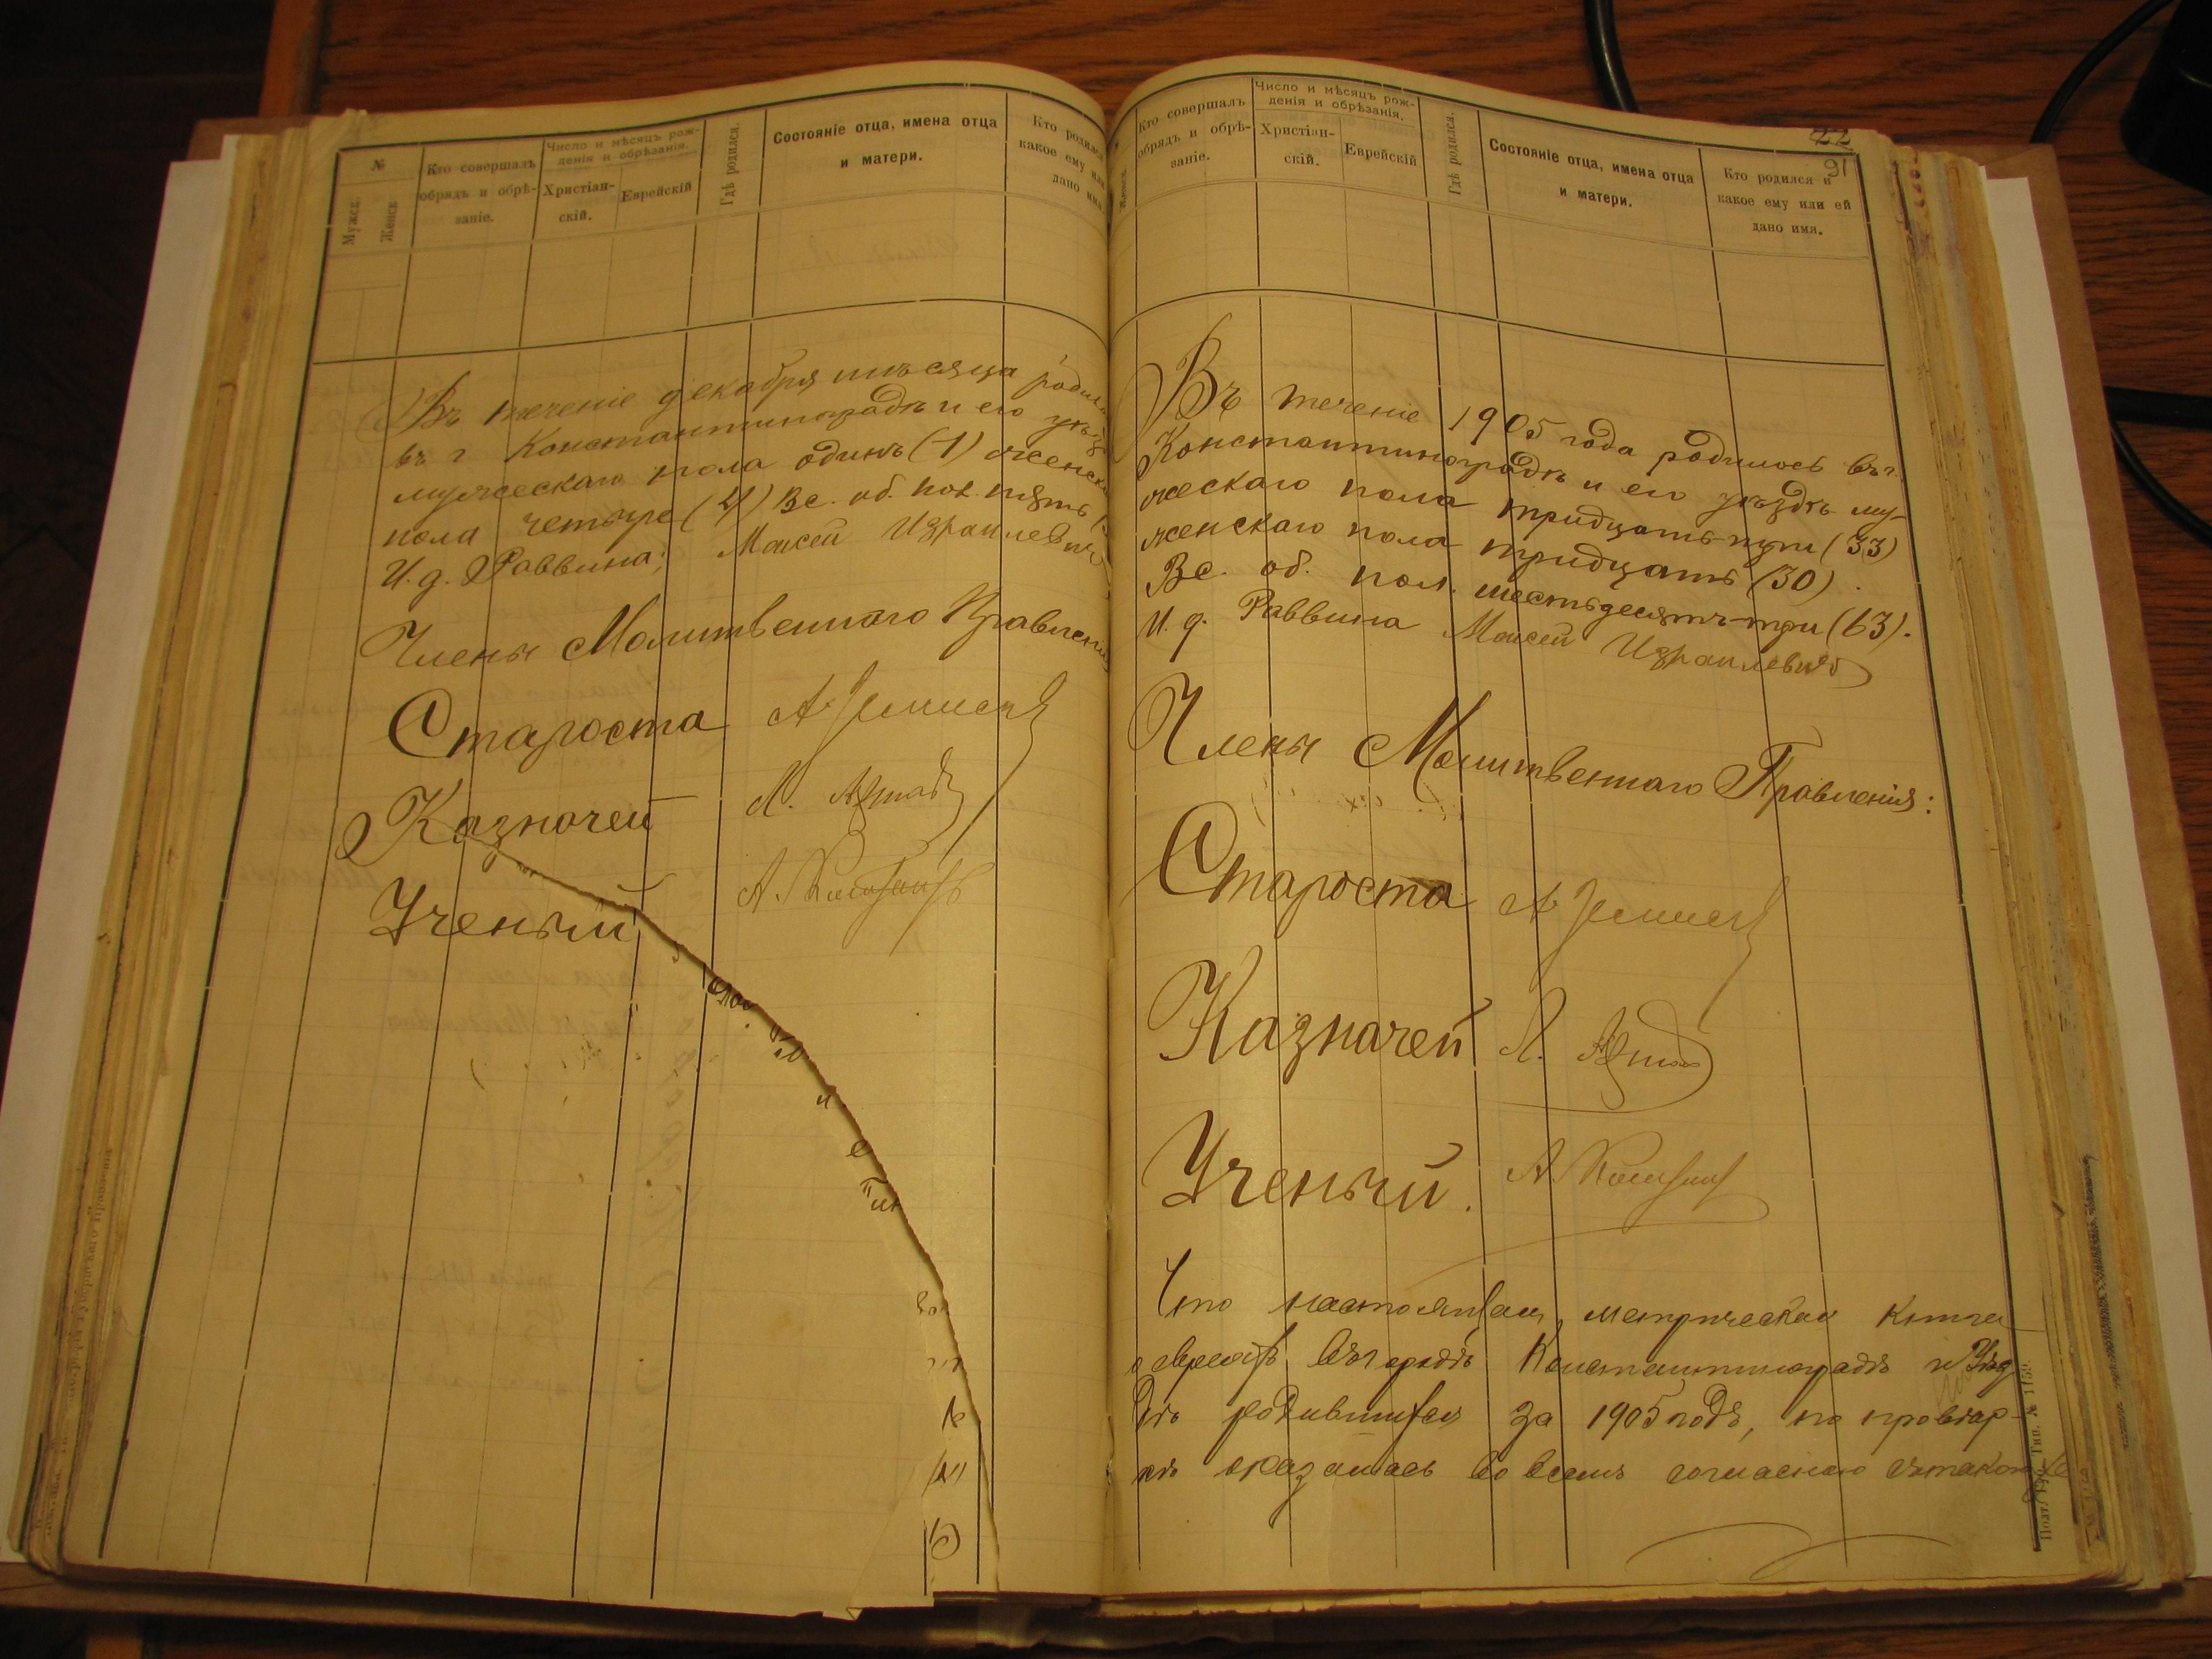 №
Мужск.
Женск.
Кто совершалъ
обрядъ и обрѣ-
заніе.
Число и мѣсяцъ рож-
денія и обрѣзанія.
Христіан-
скій.
Еврейскій
Гдѣ родился.
Состояніе отца, имена отца
и матери.
Кто родился
какое ему или
дано имя
Въ теченіе декабря мѣсяца родил
въ г Константиноградѣ и его уѣзд
мужескаго пола одинъ (1) женска
пола четыре (4) Вс. об. пол. пять
И. д. Раввина; Моисей Израилевичъ
Члены Молитвеннаго Правленія
Староста
Казначей
Ученый
22
91
Женск.
Кто совершалъ
обрядъ и обрѣ-
заніе.
Число и мѣсяцъ рож-
денія и обрѣзанія.
Христіан-
скій.
Еврейскій
Гдѣ родился.
Состояніе отца, имена отца
и матери.
Кто родился и
какое ему или ей
дано имя.
Въ теченіе 1905 года родилось въ г.
Константиноградѣ и его уѣздѣ му-
жескаго пола тридцать-три (33)
женскаго пола тридцать (30).
Вс. об. пол. шестьдесятъ-три (63).
И. д. Раввина Моисей Израилевичъ
Члены Молитвеннаго Правленія:
Староста
Казначей
Ученый.
Что настоящая метрическая книга
евреевъ въ городѣ Константиноградѣ и Уѣз
дѣ родившихся за 1905 годъ, по провѣр-
кѣ оказалась во всемъ согласною съ такою